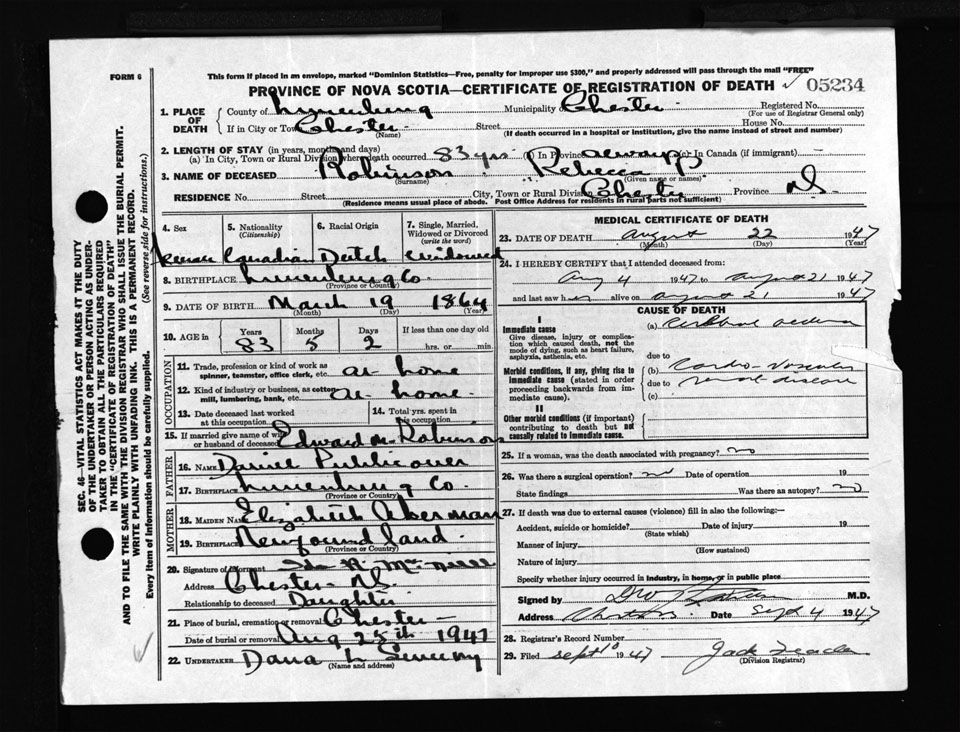 FORM 6
This form if placed in an envelope, marked "Dominion Statistics—Free, penalty for improper use $300," and properly addressed will pass through the mail "FREE"
PROVINCE OF NOVA SCOTIA—CERTIFICATE OF REGISTRATION OF DEATH 05234
1. PLACE OF DEATH
County of Lunenburg Municipality of Chester Registered No.
(For use of Registrar General only)
If in City or Town Chester Street House No.
(Name) (If death occurred in a hospital or institution, give the name instead of street and number)
2. LENGTH OF STAY (in years, months and days)
(a) In City, Town or Rural Division where death occurred 83 yrs (b) In Province always (c) In Canada (if immigrant) —
3. NAME OF DECEASED Robinson Rebecca
(Surname) (Given name or names)
RESIDENCE No. Street City, Town or Rural Division Chester Province N.S.
(Residence means usual place of abode. Post Office Address for residents in rural parts not sufficient)
4. Sex 5. Nationality (Citizenship) 6. Racial Origin 7. Single, Married, Widowed or Divorced (write the word)
Canadian Dutch widowed
8. BIRTHPLACE Lunenburg Co
(Province or Country)
9. DATE OF BIRTH March 19 1864
(Month) (Day) (Year)
10. AGE in Years Months Days If less than one day old
83 5 2 hrs. or min.
OCCUPATION
11. Trade, profession or kind of work as spinner, teamster, office clerk, etc. at home
12. Kind of industry or business, as cotton mill, lumbering, bank, etc. at home
13. Date deceased last worked at this occupation 14. Total yrs. spent in this occupation
15. If married give name of wife or husband of deceased Edward M. Robinson
FATHER
16. NAME Publicover
17. BIRTHPLACE Lunenburg Co.
(Province or Country)
MOTHER
18. MAIDEN NAME Elizabeth Akerman
19. BIRTHPLACE Newfoundland
(Province or Country)
20. Signature of Informant
Address Chester N.S.
Relationship to deceased Daughter
21. Place of burial, cremation or removal Chester
Date of burial or removal Aug 25th 1947
22. UNDERTAKER Dana L. Sweeny
(Name and address)
MEDICAL CERTIFICATE OF DEATH
23. DATE OF DEATH August 22 1947
(Month) (Day) (Year)
24. I HEREBY CERTIFY that I attended deceased from:
Aug 4 1947 to August 21 1947
and last saw her alive on August 21 1947
CAUSE OF DEATH
I
Immediate cause (a) Cerebral oedema
Give disease, injury or complication which caused death, not the mode of dying, such as heart failure, asphyxia, asthenia, etc.
due to
Morbid conditions, if any, giving rise to immediate cause (stated in order proceeding backwards from immediate cause).
(b) Cardio-Vascular
due to renal disease
(c)
II
Other morbid conditions (if important) contributing to death but not causally related to immediate cause.
25. If a woman, was the death associated with pregnancy? no
26. Was there a surgical operation? no Date of operation 19
State findings Was there an autopsy? no
27. If death was due to external causes (violence) fill in also the following:—
Accident, suicide or homicide? Date of injury 19
(State which)
Manner of injury
(How sustained)
Nature of injury
Specify whether injury occurred in industry, in home, or in public place
Signed by M.D.
Address Date Sept 4 1947
28. Registrar's Record Number
29. Filed Sept 10 1947 Jack
(Division Registrar)
SEC. 46—VITAL STATISTICS ACT MAKES IT THE DUTY
OF THE UNDERTAKER OR PERSON ACTING AS UNDER-
TAKER TO OBTAIN ALL THE PARTICULARS REQUIRED
IN THE "CERTIFICATE OF REGISTRATION OF DEATH"
AND TO FILE THE SAME WITH THE DIVISION REGISTRAR WHO SHALL ISSUE THE BURIAL PERMIT.
WRITE PLAINLY WITH UNFADING INK. THIS IS A PERMANENT RECORD.
Every item of information should be carefully supplied. (See reverse side for instructions.)